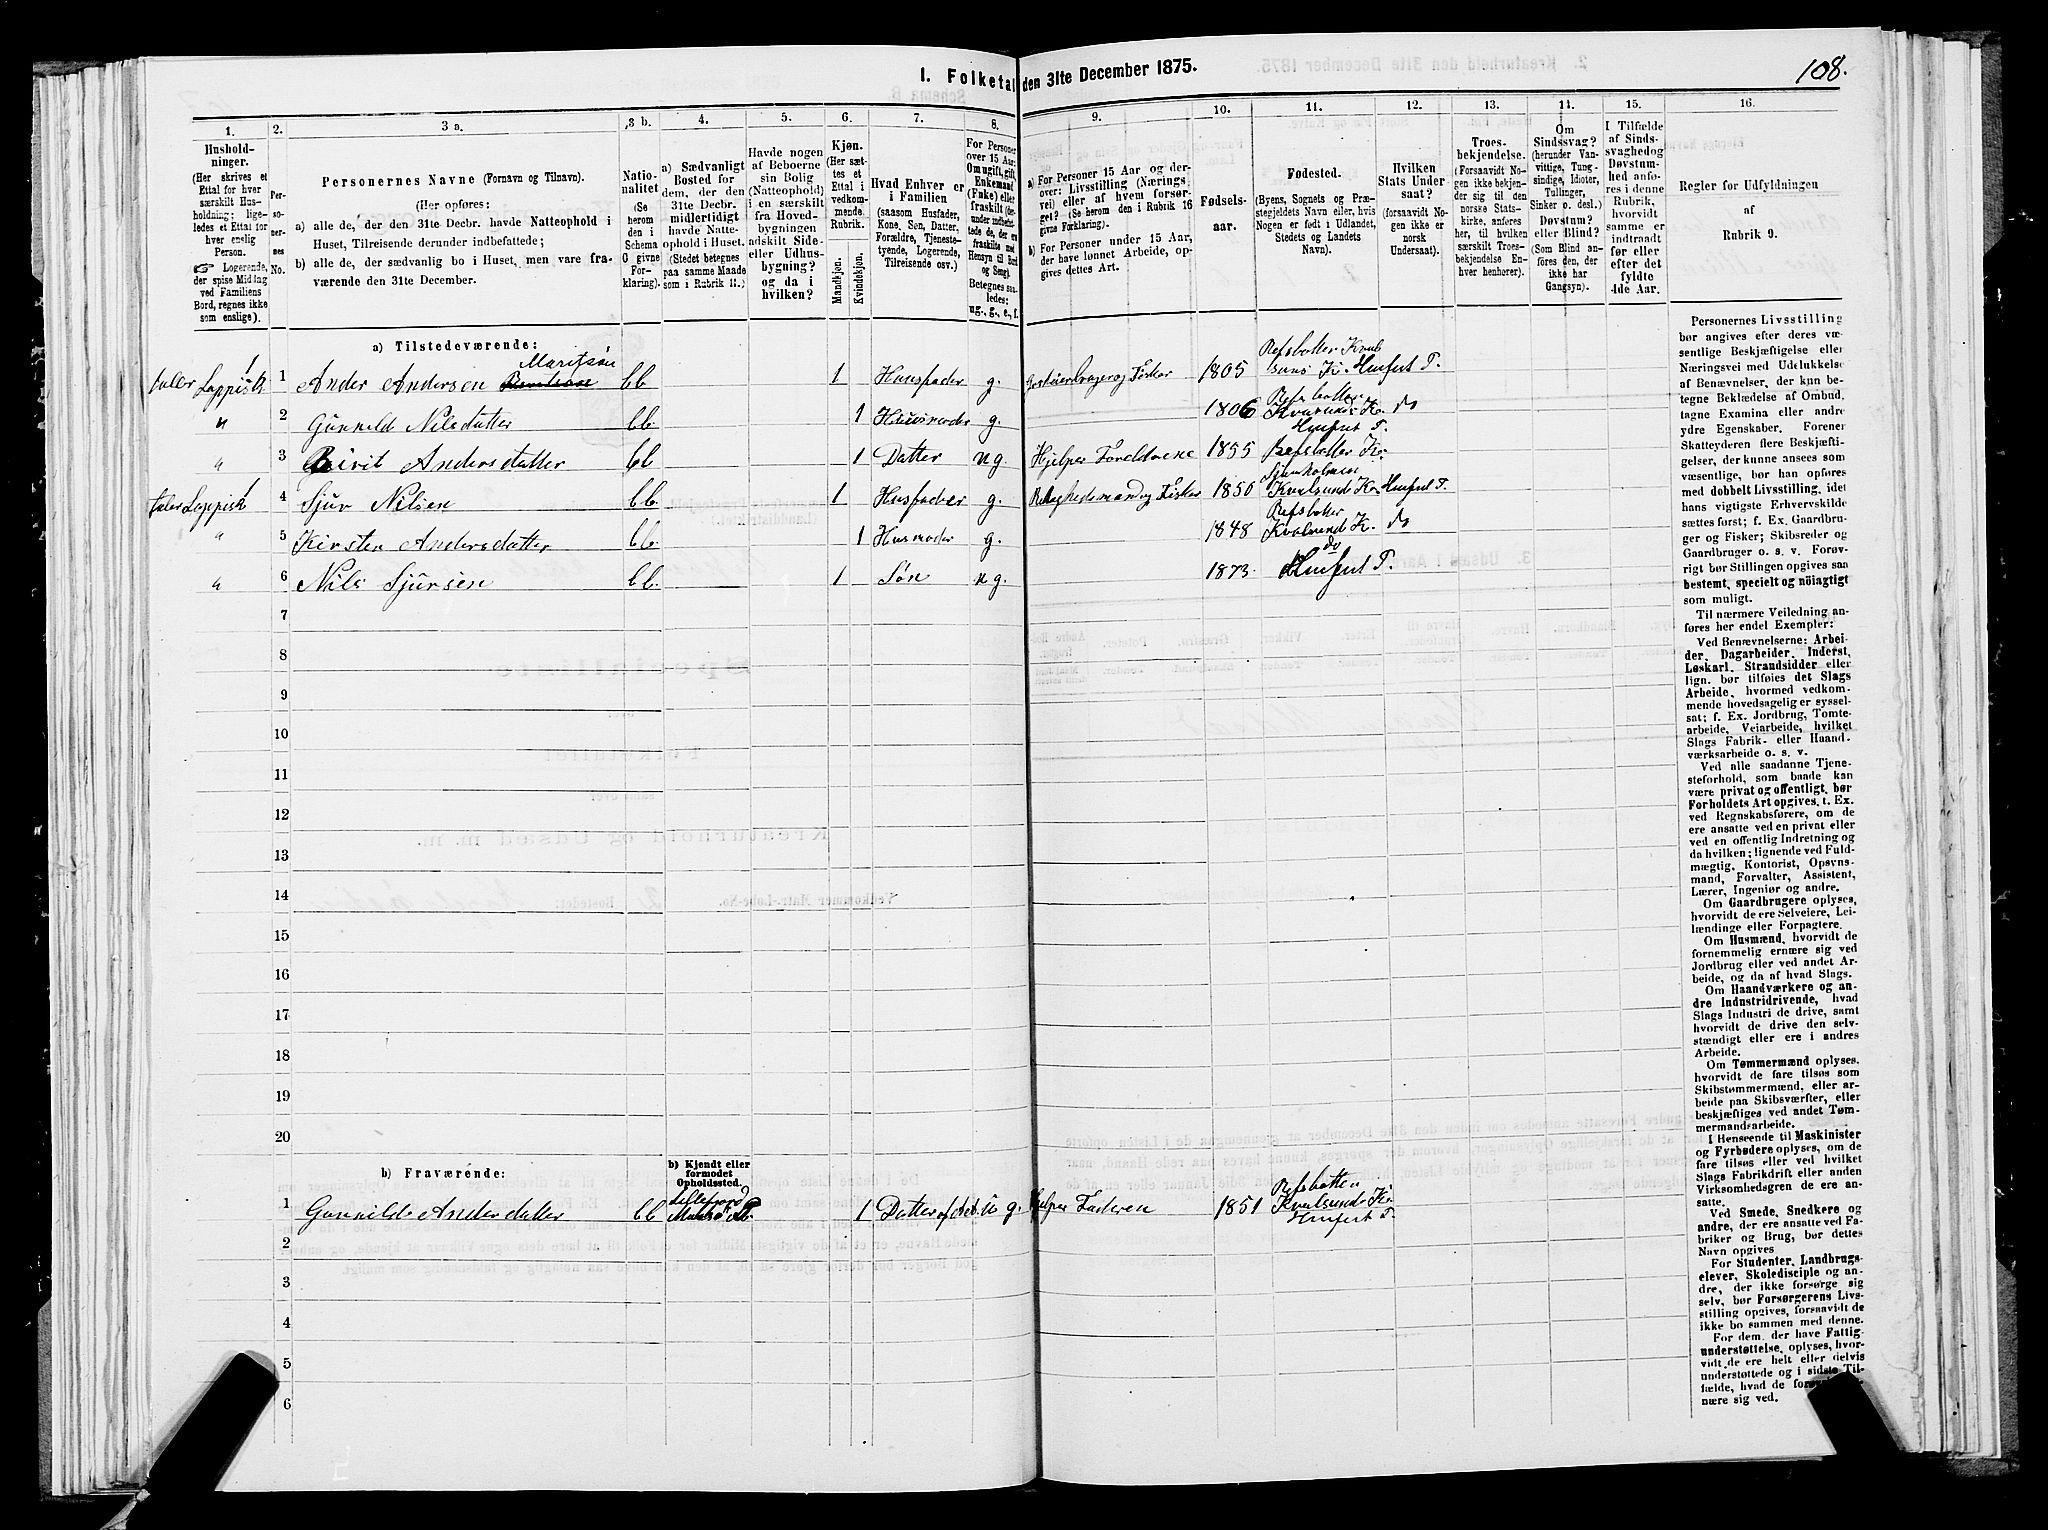 I. Folketal den 31te December 1875.
108.
1.
2.
3 a.
3 b.
4.
5.
6.
7.
8.
9.
10.
11.
12.
13.
14.
15.
16.
Hushold-
ninger.
(Her skrives et
Ettal for hver
særskilt Hus-
holdning; lige-
ledes et Ettal for
hver enslig
Person.
☞ Logerende,
der spise Middag
ved Familiens
Bord, regnes ikke
som enslige).
Per-
soner-
nes
No.
Personernes Navne (Fornavn og Tilnavn).
(Her opføres:
a) alle de, der den 31te Decbr. havde Natteophold i
Huset, Tilreisende derunder indbefattede;
b) alle de, der sædvanlig bo i Huset, men vare fra-
værende den 31te December.
Natio-
nalitet
(Se
herom
den i
Schema
C givne
For-
klaring).
a) Sædvanligt
Bosted for
dem, der den
31te Decbr.
midlertidigt
havde Natte-
ophold i Huset.
(Stedet betegnes
paa samme Maade
som i Rubrik 11.)
Havde nogen
af Beboerne
sin Bolig
(Natteophold)
i en særskilt
fra Hoved-
bygningen
adskilt Side-
eller Udhus-
bygning?
og da i
hvilken?
Kjøn.
(Her sæt-
tes et
Ettal i
vedkom-
mende
Rubrik.
Mandkjøn.
Kvindekjøn.
Hvad Enhver er
i Familien
(saasom Husfader,
Kone, Søn, Datter,
Forældre, Tjeneste-
tyende, Logerende,
Tilreisende osv.)
For Personer
over 15 Aar:
Om ugift, gift,
Enkemand
(Enke) eller
fraskilt (her-
under indbefat-
tede de, der ere
fraskilte med
Hensyn til Bord
og Seng).
Betegnes saa-
ledes:
ug., g., e., f.
a) For Personer 15 Aar og der-
over: Livsstilling (Nærings-
vei) eller af hvem forsør-
get? (Se herom den i Rubrik 16
givne Forklaring).
b) For Personer under 15 Aar,
der have lønnet Arbeide, op-
gives dettes Art.
Fødsels-
aar.
Fødested.
(Byens, Sognets og Præ-
stegjeldets Navn eller, hvis
Nogen er født i Udlandet,
Stedets og Landets
Navn).
Hvilken
Stats Under
saat?
(forsaavidt No-
gen ikke er
norsk
Undersaat).
Troes-
bekjendelse.
(Forsaavidt No-
gen ikke bekjen-
der sig til den
norske Stats-
kirke, anføres
her, til hvilken
særskilt Troes-
bekjendelse En-
hver henhorer).
Om
Sindssvag?
(herunder Van-
vittige, Tung-
sindige, Idioter,
Tullinger,
Sinker o. desl.)
Døvstum?
eller Blind?
(Som Blind an-
føres den, der
ikke har
Gangsyn).
I Tilfælde
af Sinds-
svaghed og
Døvstum-
hed anfø-
res i denne
Rubrik,
hvorvidt
samme er
indtraadt
før eller
efter det
fyldte
4de Aar.
Regler for Udfyldningen
af
Rubrik 9.
a) Tilstedeværende:
taler Lappisk 1 1 Ander Andersen Maritsøn bb 1 Huusfader g. Gaardbruger og Fisker 1805 Refsbotten Kvalsund K. Hmfst P.
" 2 Gunnild Nilsdatter bb 1 Huusmoder g. 1806 Refsbotten Kvalsund K. do
Hmfst P.
" 3 Birit Andersdatter bb 1 Datter ug Hjelper Foreldrene 1855 Refsbotten K.
taler Lappisk 1 4 Sjur Nilsen bb 1 Husfader g. 1850 Kvalsund K. Hmfest P.
" 5 Kirsten Andersdatter bb 1 Husmoder g. 1848 Refsbotten Kvalsund K. do
" 6 Nils Sjursen bb 1 Søn ug. 1873. do Hmfst P.
7
8
9
10
11
12
13
14
15
16
17
18
19
20
b) Fraværende:
b) Kjendt eller
formodet
Opholdssted.
1 Gunnilde Andersdatter bb Lillefjord 1 Datter af No 1 ug. Hjelper Faderen 1851 Refsbotten
Kvalsund K.
Hmfst P.
2
3
4
5
6
Personernes Livsstilling
bør angives efter deres væ-
sentlige Beskjæftigelse eller
Næringsvei med Udelukkelse
af Benævnelser, der kun be-
tegne Beklædelse af Ombud,
tagne Examina eller andre
ydre Egenskaber. Forener
Skatteyderen flere Beskjæfti-
gelser, der kunne ansees som
væsentlige, bør han opføres
med dobbelt Livsstilling, idet
hans vigtigste Erhvervskilde
sættes først; f. Ex. Gaardbru-
ger og Fisker; Skibsreder og
Gaardbruger o. s. v. Forøv-
rigt bør Stillingen opgives saa
bestemt, specielt og nöiagtigt
som muligt.
Til nærmere Veiledning an-
føres her endel Exempler:
Ved Benævnelserne: Arbei-
der, Dagarbeider, Inderst,
Løskarl, Strandsidder eller
lign. bør tilføies det Slags
Arbeide, hvormed vedkom-
mende hovedsagelig er syssel-
sat; f. Ex. Jordbrug, Tomte-
arbeide, Veiarbeide, hvilket
Slags Fabrik- eller Haand-
værksarbeide o. s. v.
Ved alle saadanne Tjene-
steforhold, som baade kan
være privat og offentligt, bør
Forholdets Art opgives, t. Ex.
ved Regnskabsførere, om de
ere ansatte ved en privat eller
ved en offentlig Indretning og
da hvilken; lignende ved Fuld-
mægtig, Kontorist, Opsyns-
mand, Forvalter, Assistent,
Lærer, Ingeniør og andre.
Om Gaardbrugere oplyses,
hvorvidt de ere Selveiere, Lei-
lændinge eller Forpagtere.
Om Husmænd, hvorvidt de
fornemmelig ernære sig ved
Jordbrug eller ved andet Ar-
beide, og da af hvad Slags.
Om Haandværkere og an-
dre Industridrivende, hvad
Slags Industri de drive, samt
hvorvidt de drive den selv-
stændigt eller ere i andres
Arbeide.
Om Tømmermænd oplyses,
hvorvidt de fare tilsøs som
Skibstømmermænd, eller ar-
beide paa Skibsværfter, eller
beskjæftiges ved andet Tøm-
mermandsarbeide.
I Henseende til Maskinister
og Fyrbødere oplyses, om de
fare tilsøs eller ved hvilket
Slags Fabrikdrift eller anden
Virksomhedsgren de ere an-
satte.
Ved Smede, Snedkere og
andre, der ere ansatte ved Fa-
briker og Brug, bør dettes
Navn opgives
For Studenter, Landbrugs-
elever, Skoledisciple og an-
dre, der ikke forsørge sig
selv, bør Forsørgerens Livs-
stilling opgives, forsaavidt de
ikke bo sammen med denne.
For dem, der have Fattig-
understøttelse, oplyses, hvor-
vidt de ere helt eller delvis
understøttede og i sidste Til-
fælde, hvad de
nære sig ved.